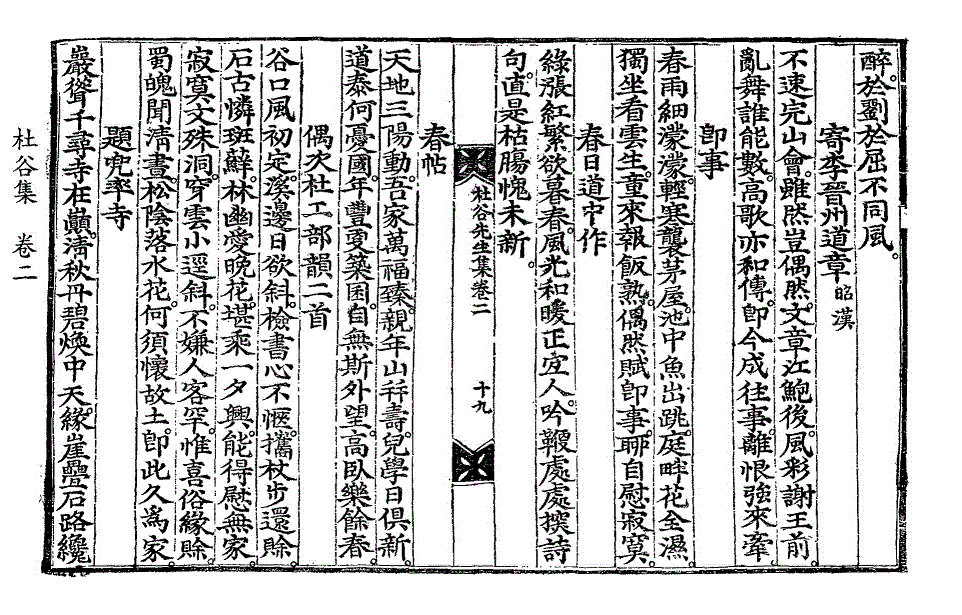 醉於劉於屈不同風
寄李晉州道章昭漢
不速完山會雖然豈偶然文章江鮑後風彩謝王前
亂舞誰能數高歌亦和傳卽今成往事離恨強來牽
卽事
春雨細濛濛輕寒襲茅屋池中魚出跳庭畔花全濕
獨坐看雲生童來報飯熟偶然賦卽事聊自慰寂寞
春日道中作
綠漲紅繁欲暮春風光和暖正宜人吟鞭處處撰詩
句直是枯膓愧未新
杜谷先生集卷二 十九
春帖
天地三陽動吾家萬福臻親年山幷壽兒學日俱新
道泰何憂國年豊更築囷自無斯外望高臥樂餘春
偶次杜工部韻二首
谷口風初定溪邊日欲斜檢書心不愜攜杖步還賒
石古憐斑蘚林幽愛晩花堪乘一夕興能得慰無家
寂寞文殊洞穿雲小逕斜不嫌人客罕惟喜俗緣賒
蜀魄聞淸晝松陰落水花何須懷故土卽此久爲家
題兜率寺
巖聳千尋寺在巓淸秋丹碧煥中天緣崖疊石路纔
杜谷集 卷二